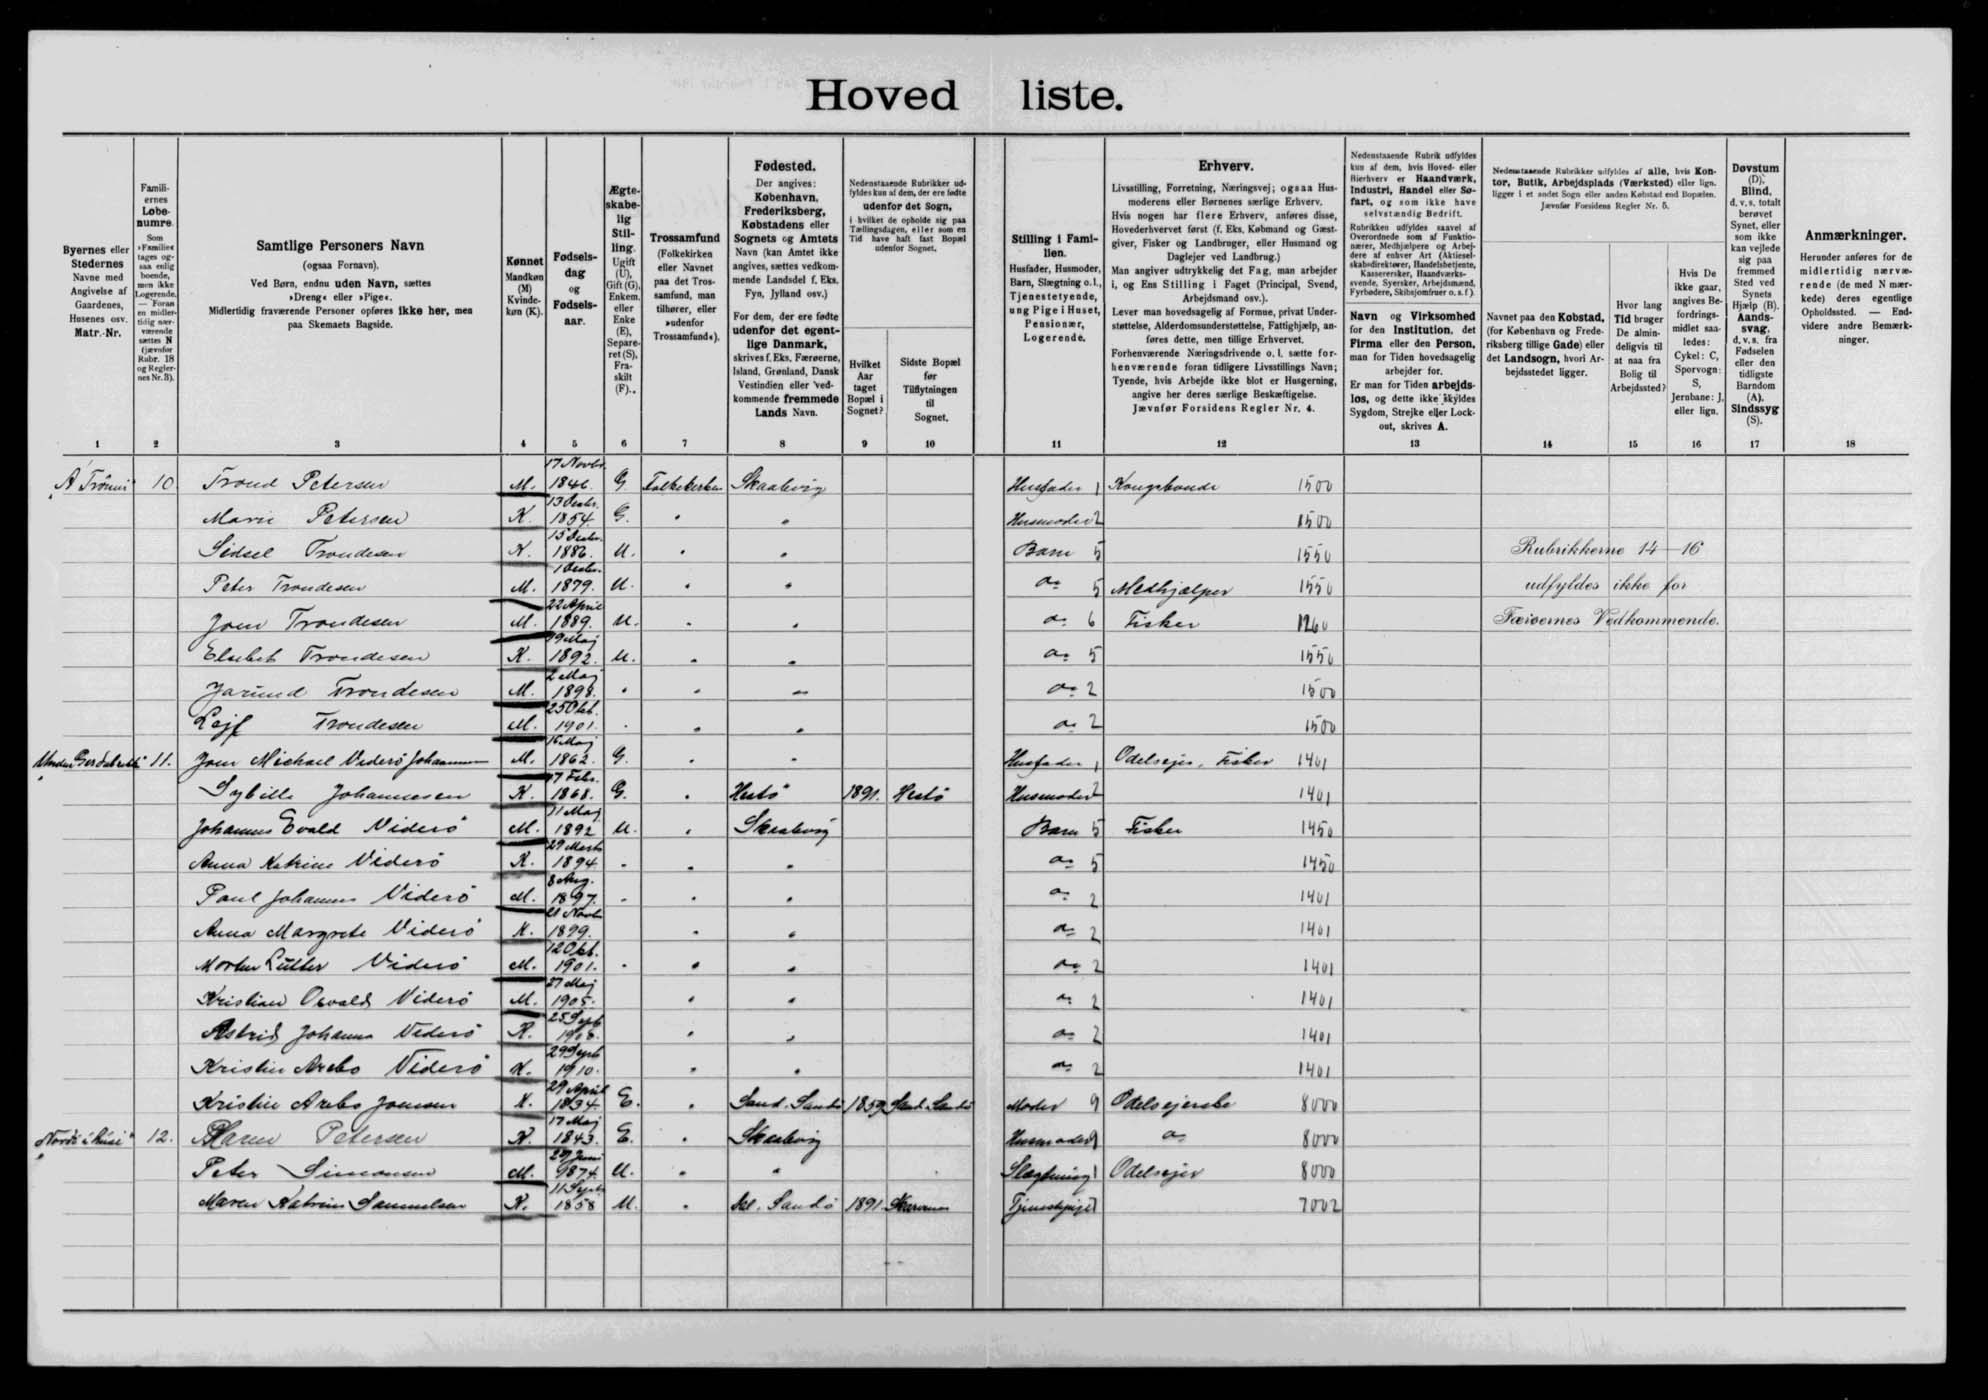 Hoved liste.
Byernes eller Stedernes Navne med Angivelse af Gaardenes, Husenes osv. Matr.-Nr.
Familiernes Løbenumre. Som »Familie« tages ogsaa enlig boende, men ikke Logerende. — Foran en midlertidig nærværende sættes N (jævnfør Rubr. 18 og Regler-nes Nr. 3).
Samtlige Personers Navn (ogsaa Fornavn). Ved Børn, endnu uden Navn, sættes »Dreng« eller »Pige«. Midlertidig fraværende Personer opføres ikke her, men paa Skemaets Bagside.
Kønnet Mandkøn (M) Kvindekøn (K).
Fødselsdag og Fødselsaar.
Ægteskabelig Stilling. Ugift (U), Gift (G), Enkem. eller Enke (E), Separeret (S), Fraskilt (F).
Trossamfund (Folkekirken eller Navnet paa det Trossamfund, man tilhører, eller »udenfor Trossamfund«).
Fødested. Der angives: København, Frederiksberg, Købstadens eller Sognets og Amtets Navn (kan Amtet ikke angives, sættes vedkommende Landsdel f. Eks. Fyn, Jylland osv.) For dem, der ere fødte udenfor det egentlige Danmark, skrives f. Eks. Færøerne, Island, Grønland, Dansk Vestindien eller vedkommende fremmede Lands Navn.
Nedenstaaende Rubrikker udfyldes kun af dem, der ere fødte udenfor det Sogn, i hvilket de opholde sig paa Tællingsdagen, eller som en Tid have haft fast Bopæl udenfor Sognet.
Hvilket Aar taget Bopæl i Sognet?
Sidste Bopæl før Tilflytningen til Sognet.
Stilling i Familien. Husfader, Husmoder, Barn, Slægtning o. l., Tjenestetyende, ung Pige i Huset, Pensionær, Logerende.
Erhverv. Livsstilling, Forretning, Næringsvej; ogsaa Husmoderens eller Børnenes særlige Erhverv. Hvis nogen har flere Erhverv, anføres disse, Hovederhvervet først (f. Eks. Købmand og Gæstgiver, Fisker og Landbruger, eller Husmand og Daglejer ved Landbrug.) Man angiver udtrykkelig det Fag, man arbejder i, og Ens Stilling i Faget (Principal, Svend, Arbejdsmand osv.). Lever man hovedsagelig af Formue, privat Understøttelse, Alderdomsunderstøttelse, Fattighjælp, anføres dette, men tillige Erhvervet. Forhenværende Næringsdrivende o. l. sætte forhenværende foran tidligere Livsstillings Navn; Tyende, hvis Arbejde ikke blot er Husgerning, angive her deres særlige Beskæftigelse. Jævnfør Forsidens Regler Nr. 4.
Nedenstaaende Rubrik udfyldes kun af dem, hvis Hoved- eller Bierhverv er Haandværk, Industri, Handel eller Søfart, og som ikke have selvstændig Bedrift. Rubrikken udfyldes saavel af Overordnede som af Funktionærer, Medhjælpere og Arbejdere af enhver Art (Aktieselskabsdirektører, Handelsbetjente, Kasserersker, Haandværkssvende, Syersker, Arbejdsmænd, Fyrbødere, Skibsjomfruer o. s. f.).
Navn og Virksomhed for den Institution, det Firma eller den Person, man for Tiden hovedsagelig arbejder for. Er man for Tiden arbejdsløs, og dette ikke skyldes Sygdom, Strejke eller Lockout, skrives A.
Nedenstaaende Rubrikker udfyldes af alle, hvis Kontor, Butik, Arbejdsplads (Værksted) eller lign. ligger i et andet Sogn eller anden Købstad end Bopælen. Jævnfør Forsidens Regler Nr. 5.
Navnet paa den Købstad, (for København og Frederiksberg tillige Gade) eller det Landsogn, hvori Arbejdsstedet ligger.
Hvor lang Tid bruger De almindeligvis til at naa fra Bolig til Arbejdssted?
Hvis De ikke gaar, angives Befordringsmidlet saaledes: Cykel: C, Sporvogn: S, Jernbane: J, eller lign.
Døvstum (D), Blind, d. v. s. totalt berøvet Synet, eller som ikke kan vejlede sig paa fremmed Sted ved Synets Hjælp (B). Aandssvag, d. v. s. fra Fødselen eller den tidligste Barndom (A). Sindssyg (S).
Anmærkninger. Herunder anføres for de midlertidig nærværende (de med N mærkede) deres egentlige Opholdssted. — Endvidere andre Bemærkninger.
1 2 3 4 5 6 7 8 9 10 11 12 13 14 15 16 17 18
10. Trond Petersen M. 17 Novbr. 1846. G Folkekirken Skaalevig Husfader 1 Kongsbonde 1500
Marie Petersen K. 13 Decbr. 1854. G. " " Husmoder 2 1500
Sidsel Trondesen K. 15 Decbr. 1886. U. " " Barn 5 1550 Rubrikkerne 14-16
Peter Trondesen M. 1 Decbr. 1879. U. " " do 5 Medhjælper 1550 udfyldes ikke for
Joen Trondesen M. 22 April 1889. U. " " do 6 Fisker 1260 Færøernes Vedkommende.
Elsebet Trondesen K. 19 Maj 1892. U. " " do 5 1550
Jarund Trondesen M. 2 Maj 1898. " " " do 2 1500
Lejf Trondesen M. 25 Okt. 1901. " " " do 2 1500
11. Joen Michael Viderö Johannesen M. 16 Maj 1862. G. " " Husfader 1 Odelsejer, Fisker 1401
Sybille Johannesen K. 17 Febr. 1868. G. " Hestö 1891. Hestö Husmoder 2 1401
Johannes Evald Viderö M. 11 Maj 1892 U. " Skaalevig Barn 5 Fisker 1450
Anna Katrine Viderö K. 29 Marts 1894. " " " do 5 1450
Poul Johannes Viderö M. 8 Aug. 1897. " " " do 2 1401
Anna Margrete Viderö K. 21 Novbr 1899. " " do 2 1401
Morten Luther Viderö M. 12 Okt. 1901. " " " do 2 1401
Kristian Osvald Viderö M. 27 Maj 1905. " " do 2 1401
Astrid Johanna Viderö K. 25 Sept 1908. " " do 2 1401
Kristine Arebo Viderö K. 29 Sept 1910. " " do 2 1401
Kristine Arebo Joensen K. 29 April 1834. E. " Sand. Sandö 1859. Sand. Sandö Moder 9 Odelsejerske 8000
12. Maren Petersen K. 17 Maj 1843. E. " Skaalevig Husmoder 9 do 8000
Peter Simonsen M. 29 Juni 1874. U. " " Slægtning 1 Odelsejer 8000
Maren Katrine Samuelsen K. 11 Sept 1858 U. " Sandö 1891. Tjenestepige 7 7002